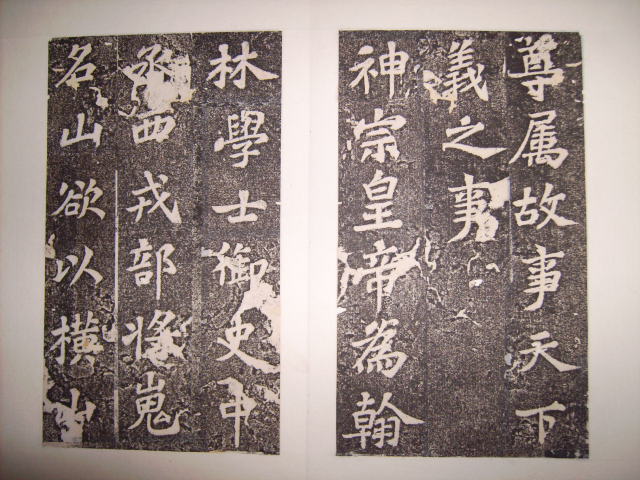 尊属故事天下
義之事
神宗皇帝為翰
林學士御史中
丞西戎部将嵬
名山欲以横山